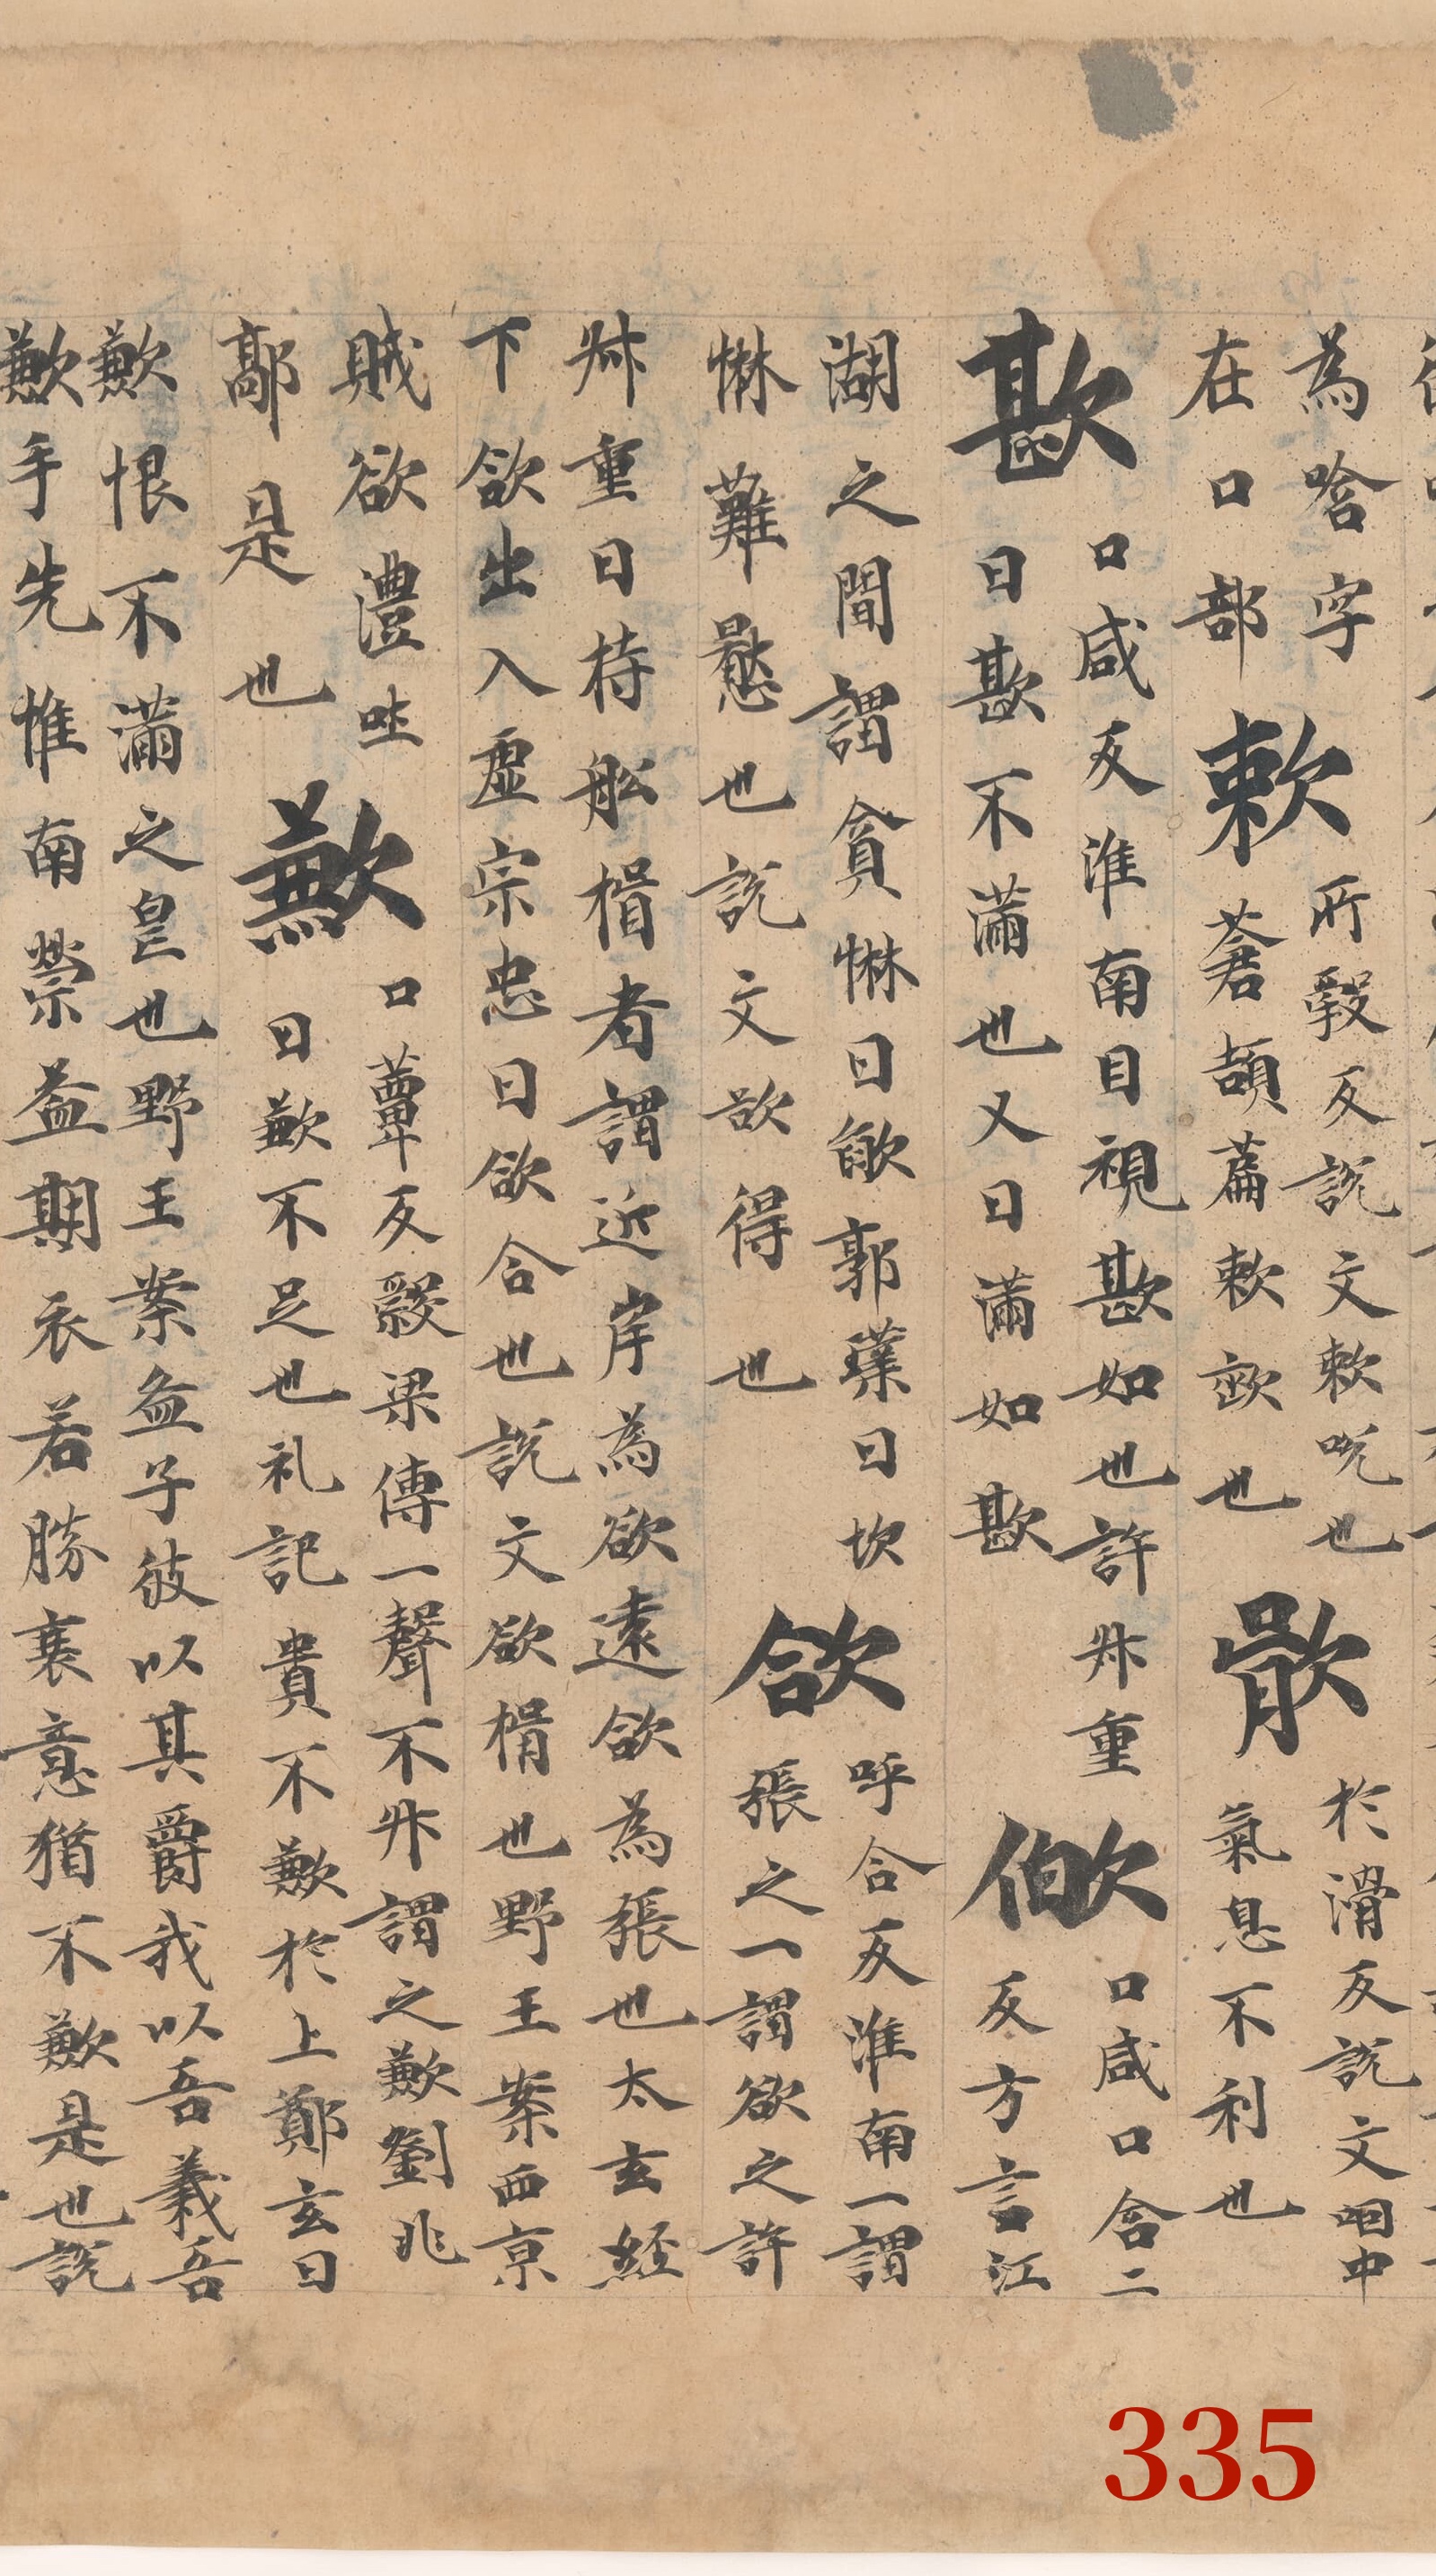 為唅字
在口部
欶
所㲄反說文欶吮也
蒼頡篇欶歃也
䯏
於滑反說文咽中
氣息不利也
歁
口咸反淮南自視歁如也許叔重
曰歁不滿也又曰滿如歁
口咸口含二
反方言江
湖之間謂貪惏曰郭璞曰坎
惏難猒也說文欲得也
欱
呼合反淮南一謂
張之一謂欱之許
叔重曰持舩楫者謂近岸為欱遠欱為張也太玄經
下欱出入虛宗忠曰欱合也說文欱楫也野王案西京
賦欱澧吐
鄗是也
歉
口蕈反糓梁傳一聲不升謂之歉劉兆
曰歉不足也礼記貴不歉於上鄭玄曰
歉恨不滿之皃也野王案孟子彼以其爵我以吾義吾
歉乎先惟南榮益期衣若勝衰意猶不歉是也說
335